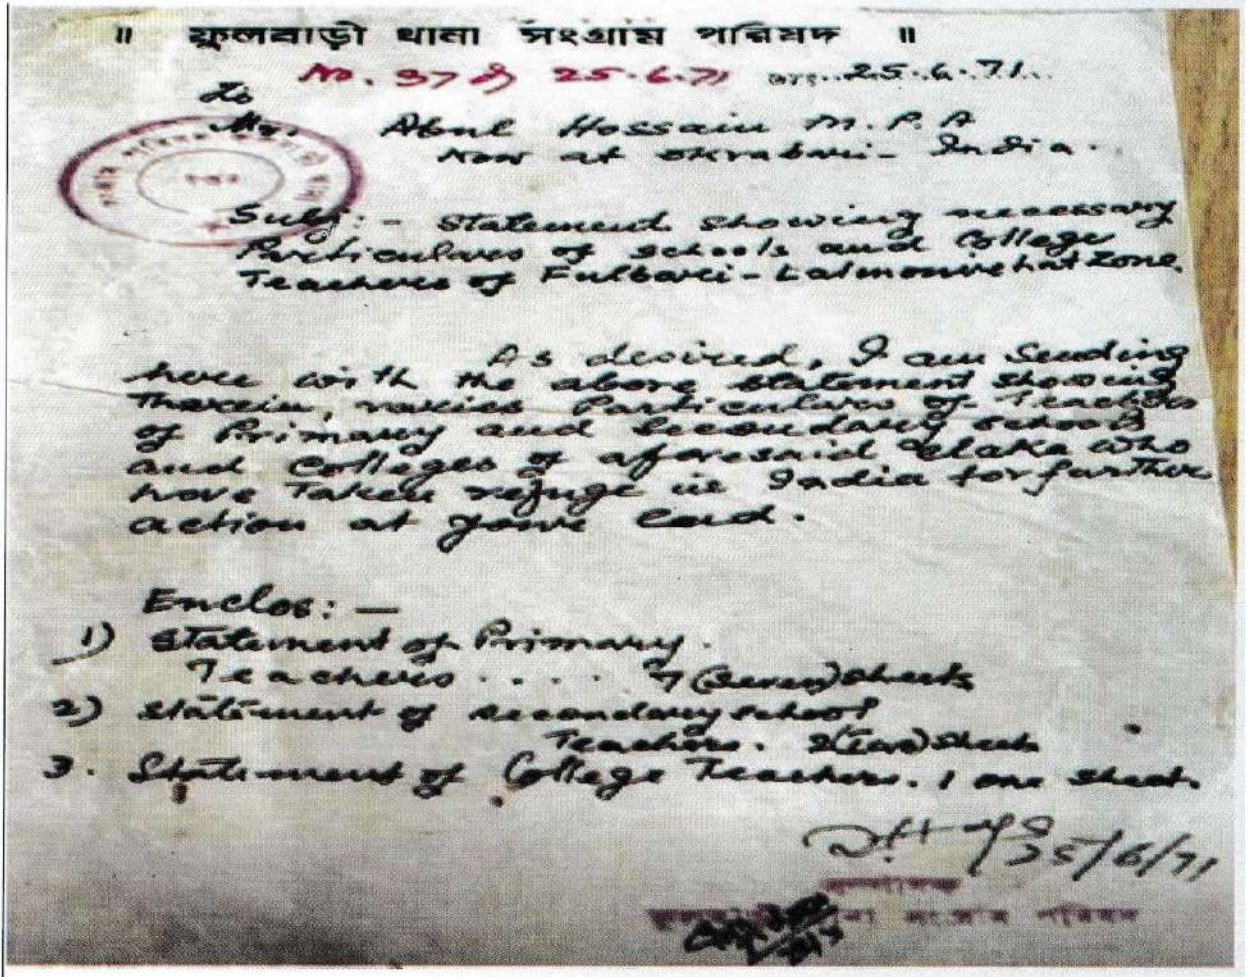 ॥ ফুলবাড়ী থানা সংগ্রাম পরিষদ ॥
No. 37 25.6.71 তাং..25.6.71..
To
Mr. Abul Hossain M.P.A
Now at Okrabari- India.
Subj:- Statement showing necessary
Particulars of schools and College
Teachers of Fulbari-Lalmonirhat Zone.
As desired, I am Sending
here with the above statement showing
Therein, varies Particulars of Teachers
of Primary and Secondary schools
and Colleges of aforesaid elaka who
have Taken refuge in India for further
action at your end.
Enclos:—
1) Statement of Primary.
Teachers.... 7 (Seven) sheets
2) Statement of secondary school
Teachers. 2 (Two) Sheets
3. Statement of College Teachers. 1 one sheet.
25/6/71
সম্পাদক
ফুলবাড়ী থানা সংগ্রাম পরিষদ